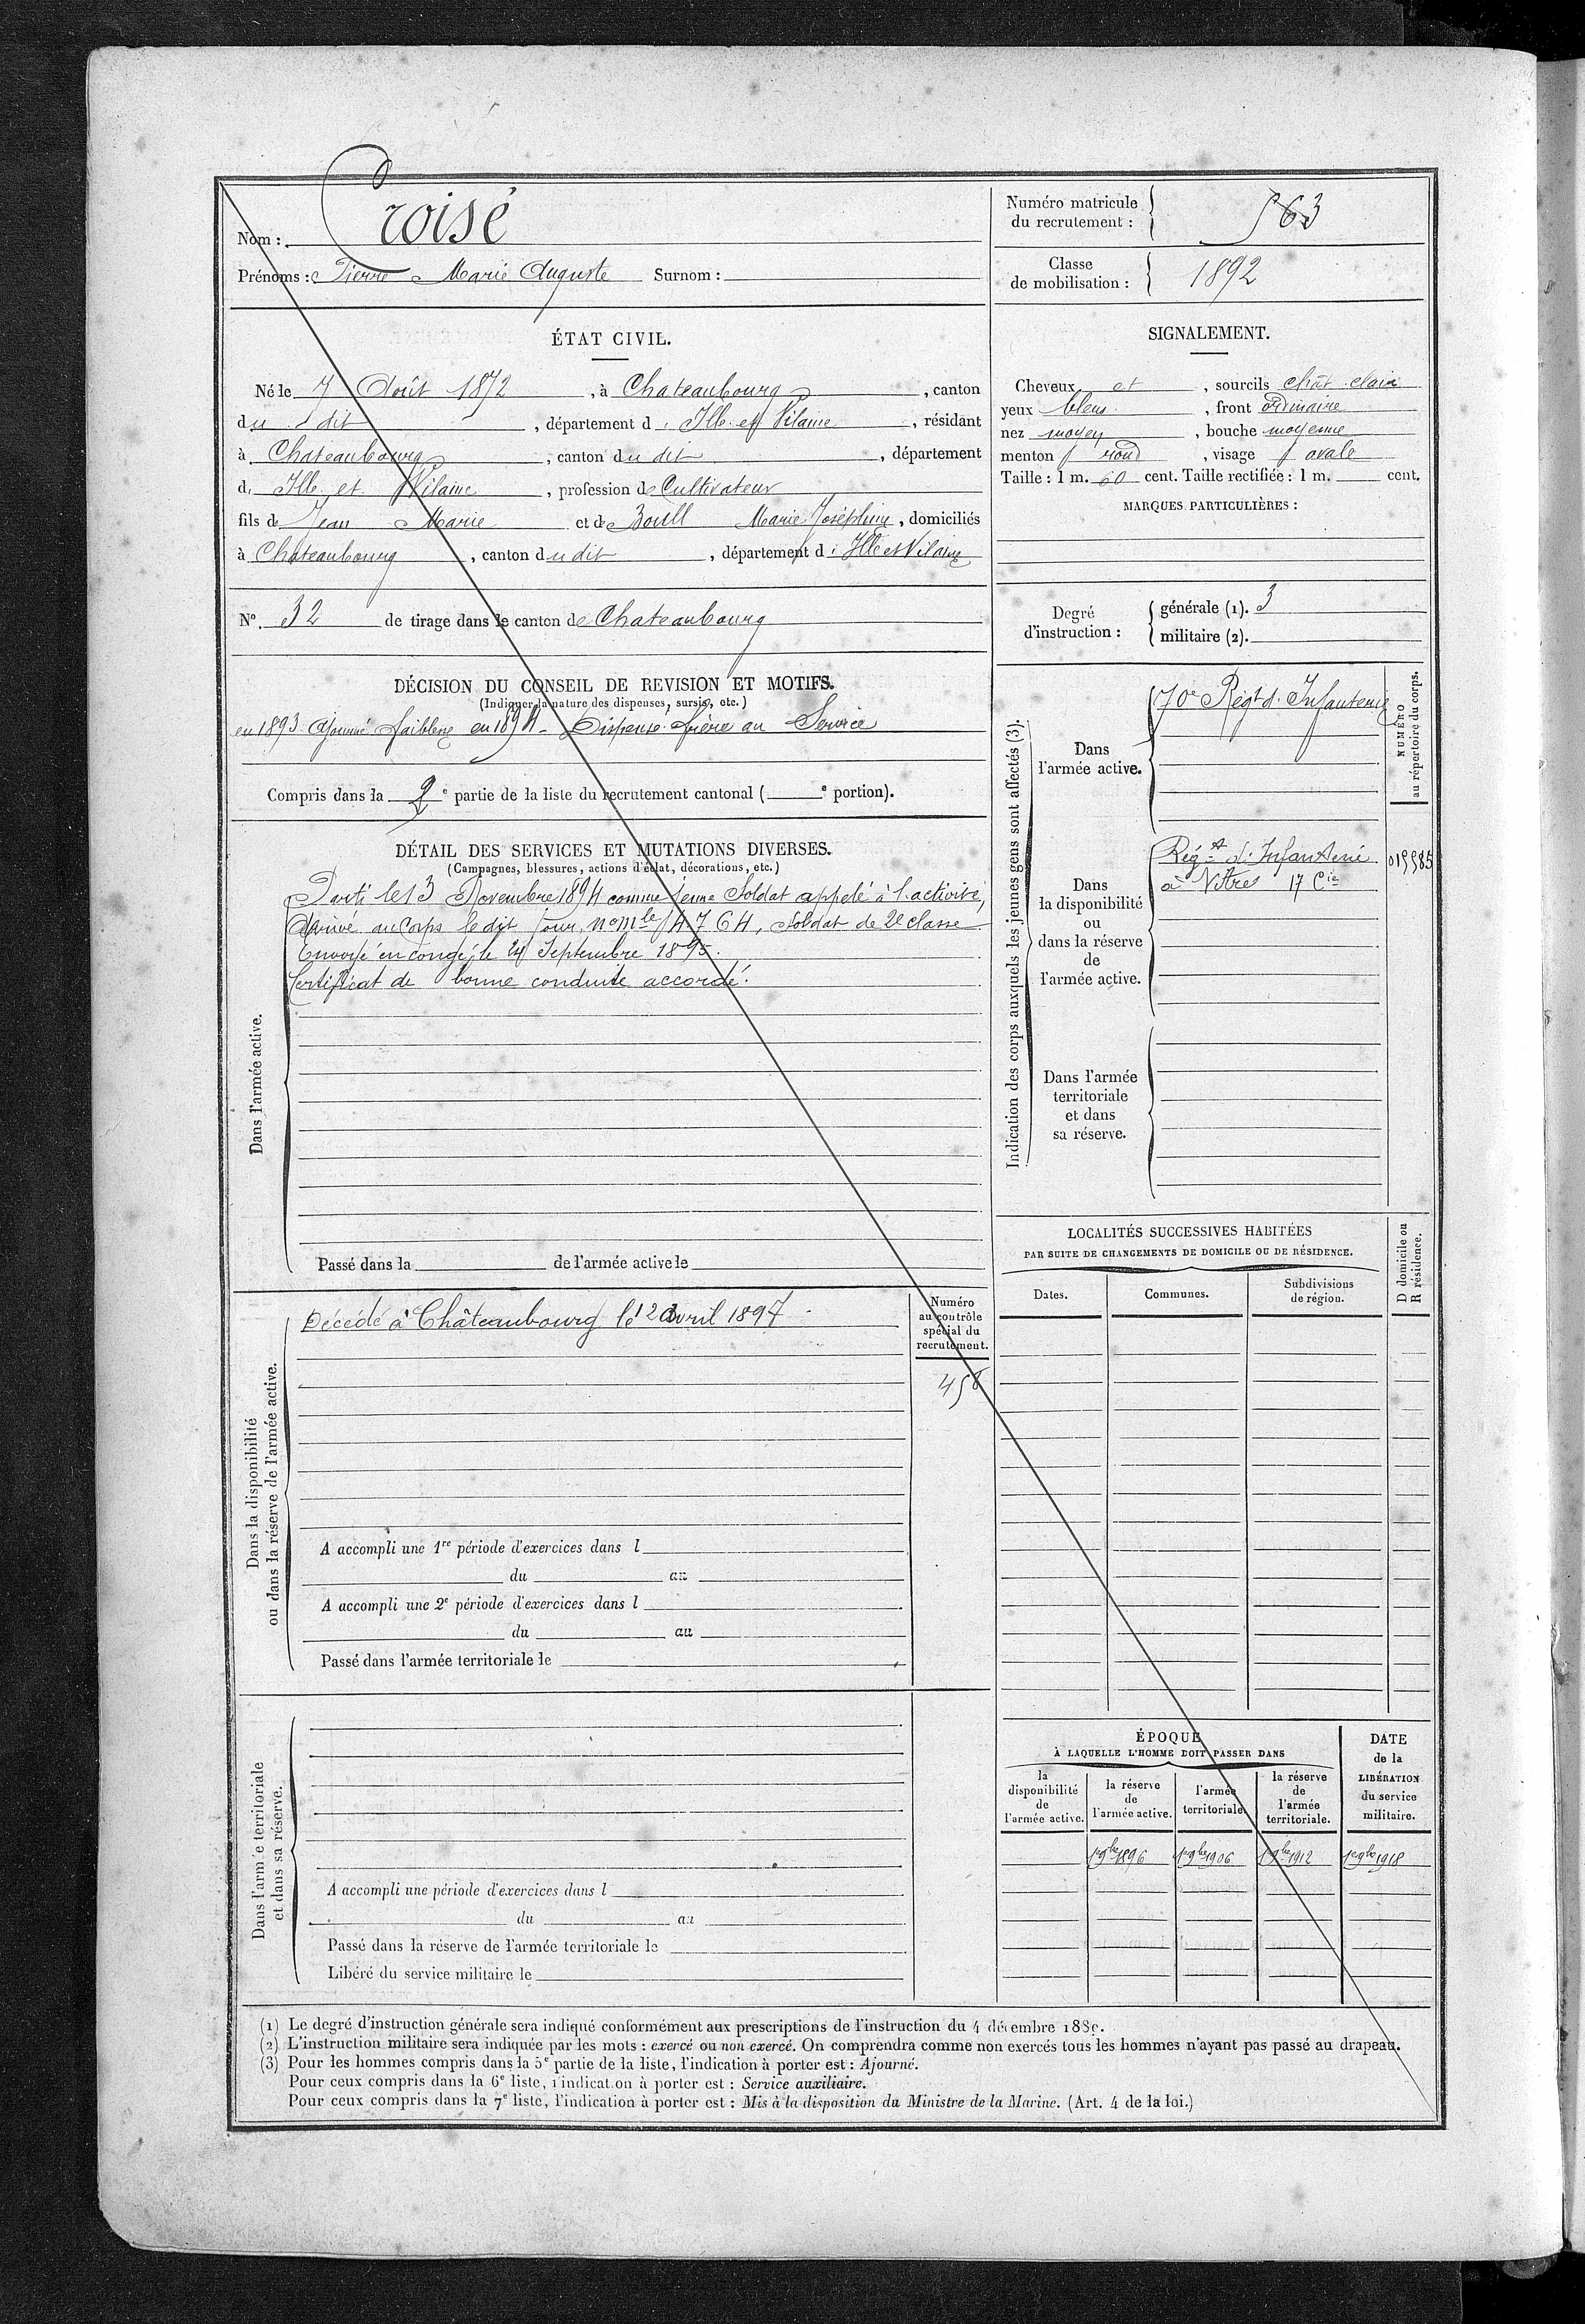 Nom : Croisé
Prénoms : Pierre Marie Auguste Surnom :
Numéro matricule
du recrutement : 563
Classe
de mobilisation : 1892
ÉTAT CIVIL.
Né le 7 Août 1872, à Chateaubourg, canton
du dit, département d' Ille et Vilaine, résidant
à Chateaubourg, canton du dit, département
d' Ille et Vilaine, profession de Cultivateur
fils de Jean Marie et de Marie Joséphine, domiciliés
à Chateaubourg, canton du dit, département d' Ille et Vilaine
No. 32 de tirage dans le canton de Chateaubourg
SIGNALEMENT.
Cheveux et, sourcils chât. clair
yeux bleus, front ordinaire
nez moyen, bouche moyenne
menton rond, visage ovale
Taille : 1 m. 60 cent. Taille rectifiée : 1 m. cent.
MARQUES PARTICULIÈRES :
Degré
d'instruction :
générale (1). 3
militaire (2).
DÉCISION DU CONSEIL DE REVISION ET MOTIFS.
(Indiquer la nature des dispenses, sursis, etc.)
en 1893 Ajourné faiblesse en 1894 - Dispensé. frère au Service
Compris dans la 2e partie de la liste du recrutement cantonal ( e portion).
DÉTAIL DES SERVICES ET MUTATIONS DIVERSES.
(Campagnes, blessures, actions d'éclat, décorations, etc.)
Dans l'armée active.
Parti le 13 Novembre 1894 comme jeune Soldat appelé à l'activité,
Arrivé au Corps le dit jour, no mle 4764, Soldat de 2e classe
Envoyé en congé, le 24 Septembre 1895.
Certificat de bonne conduite accordé.
Passé dans la de l'armée active le
Dans la disponibilité
ou dans la réserve de l'armée active.
Décédé à Châteaubourg le 12 avril 1897.
Numéro
au contrôle
spécial du
recrutement.
458
A accompli une 1re période d'exercices dans l
du au
A accompli une 2e période d'exercices dans l
du au
Passé dans l'armée territoriale le
Dans l'armée territoriale
et dans sa réserve.
A accompli une période d'exercices dans l
du au
Passé dans la réserve de l'armée territoriale le
Libéré du service militaire le
Indication des corps auxquels les jeunes gens sont affectés (3).
Dans
l'armée active.
70e Régt d'Infanterie
NUMÉRO
au répertoire du corps.
Dans
la disponibilité
ou
dans la réserve
de
l'armée active.
Régt d'Infanterie
à Vitré 17 Cie
015585
Dans l'armée
territoriale
et dans
sa réserve.
LOCALITÉS SUCCESSIVES HABITÉES
PAR SUITE DE CHANGEMENTS DE DOMICILE OU DE RÉSIDENCE.
Dates.
Communes.
Subdivisions
de région.
D domicile ou
R résidence.
ÉPOQUE
À LAQUELLE L'HOMME DOIT PASSER DANS
la
disponibilité
de
l'armée active.
la réserve
de
l'armée active.
l'armée
territoriale.
la réserve
de
l'armée
territoriale.
DATE
de la
LIBÉRATION
du service
militaire.
1er 9bre 1896
1er 9bre 1906
1er 9bre 1912
1er 9bre 1918
(1) Le degré d'instruction générale sera indiqué conformément aux prescriptions de l'instruction du 4 décembre 1889.
(2) L'instruction militaire sera indiquée par les mots : exercé ou non exercé. On comprendra comme non exercés tous les hommes n'ayant pas passé au drapeau.
(3) Pour les hommes compris dans la 5e partie de la liste, l'indication à porter est : Ajourné.
Pour ceux compris dans la 6e liste, l'indication à porter est : Service auxiliaire.
Pour ceux compris dans la 7e liste, l'indication à porter est : Mis à la disposition du Ministre de la Marine. (Art. 4 de la loi.)